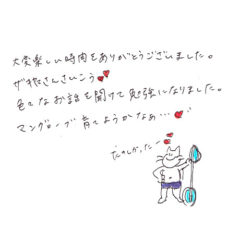 大変楽しい時間をありがとうございました。
ザキさんさいこう
色々なお話を聞けて勉強になりました。
マングローブ育てようかなぁ…
たのしかったー